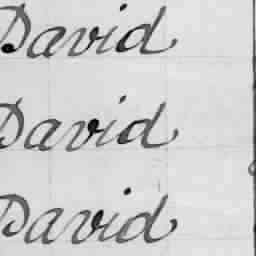 David
David
David